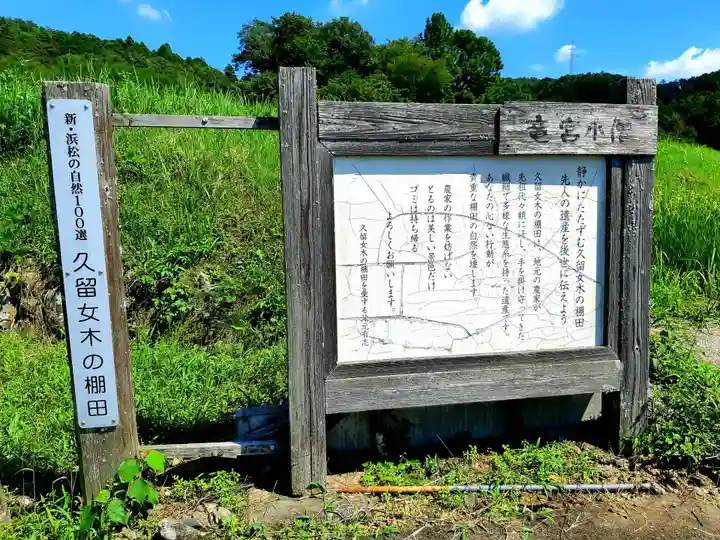 新・浜松の自然100選
久留女木の棚田
竜宮小僧
静かにたたずむ久留女木の棚田
先人の遺産を後世に伝えよう
久留女木の棚田は、地元の農家が
先祖代々額に汗し、手を掛け守ってきた
繊細で多様な生態系を持った遺産です。
あなたの心ない行動が
貴重な棚田の自然を壊します
農家の作業を妨げない
とるのは美しい景色だけ
ゴミは持ち帰る
よろしくお願いします。
久留女木の棚田を愛する地元有志